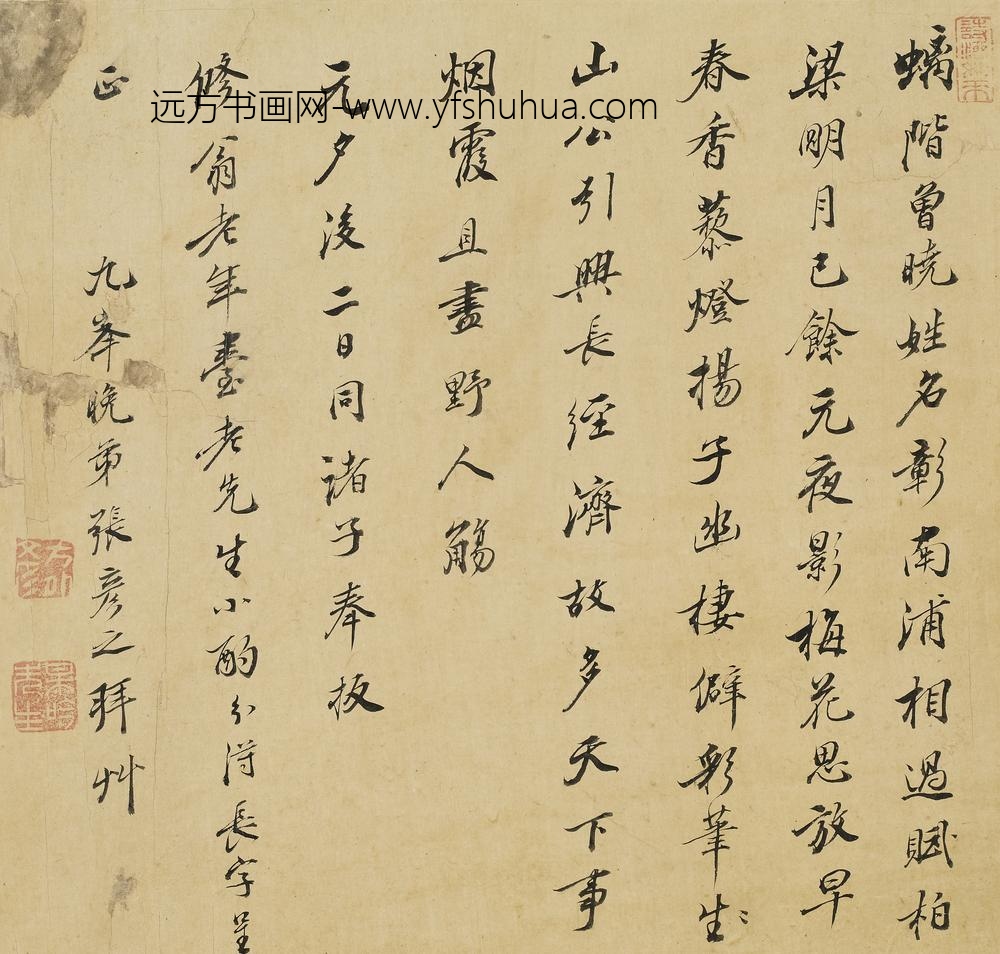 螭階曾曉姓名彰南浦相過賦柏
梁明月已餘元夜影梅花思放早
春香藜燈揚子幽棲僻彩筆生〻
山公引興長經濟故多天下事
烟霞且盡野人觴
元夕後二日同諸子奉扳
修翁老年臺老先生小酌分得長字呈
正
九峯晚弟張彥之拜艸
远方书画网-www.yfshuhua.com